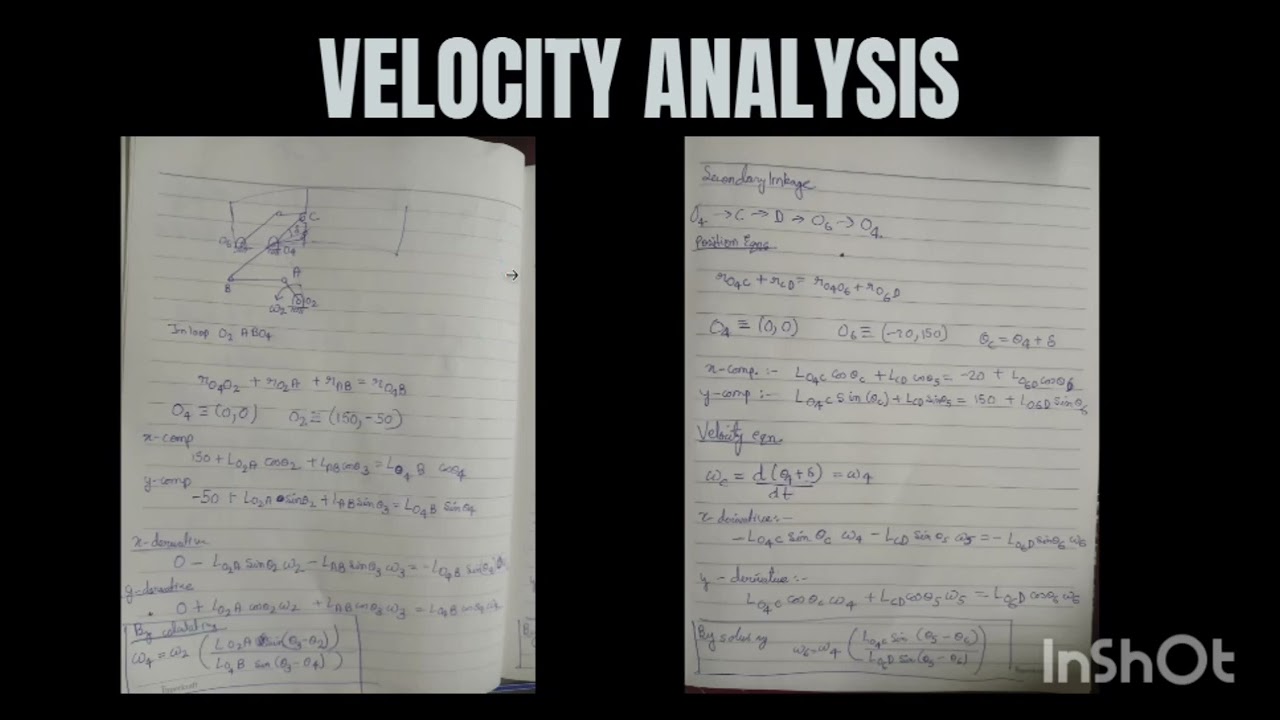 VELOCITY ANALYSIS
C
O6
O4
A
B
O2
ω2
In loop O2 ABO4
r_O4O2 + r_O2A + r_AB = r_O4B
O4 ≡ (0,0) O2 ≡ (150,-50)
x-comp
150 + L_O2A cosθ2 + L_AB cosθ3 = L_O4B cosθ4
y-comp
-50 + L_O2A sinθ2 + L_AB sinθ3 = L_O4B sinθ4
x-derivative
0 - L_O2A sinθ2 ω2 - L_AB sinθ3 ω3 = -L_O4B
y-derivative
0 + L_O2A cosθ2 ω2 + L_AB cosθ3 ω3 = L_O4B
By
ω4 = ω2 (L_O2A sin(θ3-θ2) / L_O4B sin(θ3-θ4))
Secondary linkage
O4 → C → D → O6 → O4.
Position Eqns
r_O4C + r_CD = r_O4O6 + r_O6D
O4 ≡ (0,0) O6 ≡ (-20,150) θc = θ4 + δ
x-comp. :- L_O4C cosθc + L_CD cosθ5 = -20 + L_O6D cosθ6
y-comp :- L_O4C sin(θc) + L_CD sinθ5 = 150 + L_O6D sinθ6
Velocity eqn.
ωc = d(θ4+δ)/dt = ω4
x-derivative:-
-L_O4C sinθc ω4 - L_CD sinθ5 ω5 = -L_O6D sinθ6 ω6
y-derivative:-
L_O4C cosθc ω4 + L_CD cosθ5 ω5 = L_O6D cosθ6 ω6
By solving ω6 = ω4 (L_O4C sin(θ5-θ6) / L_O6D sin(θ5-θ6))
InShOt